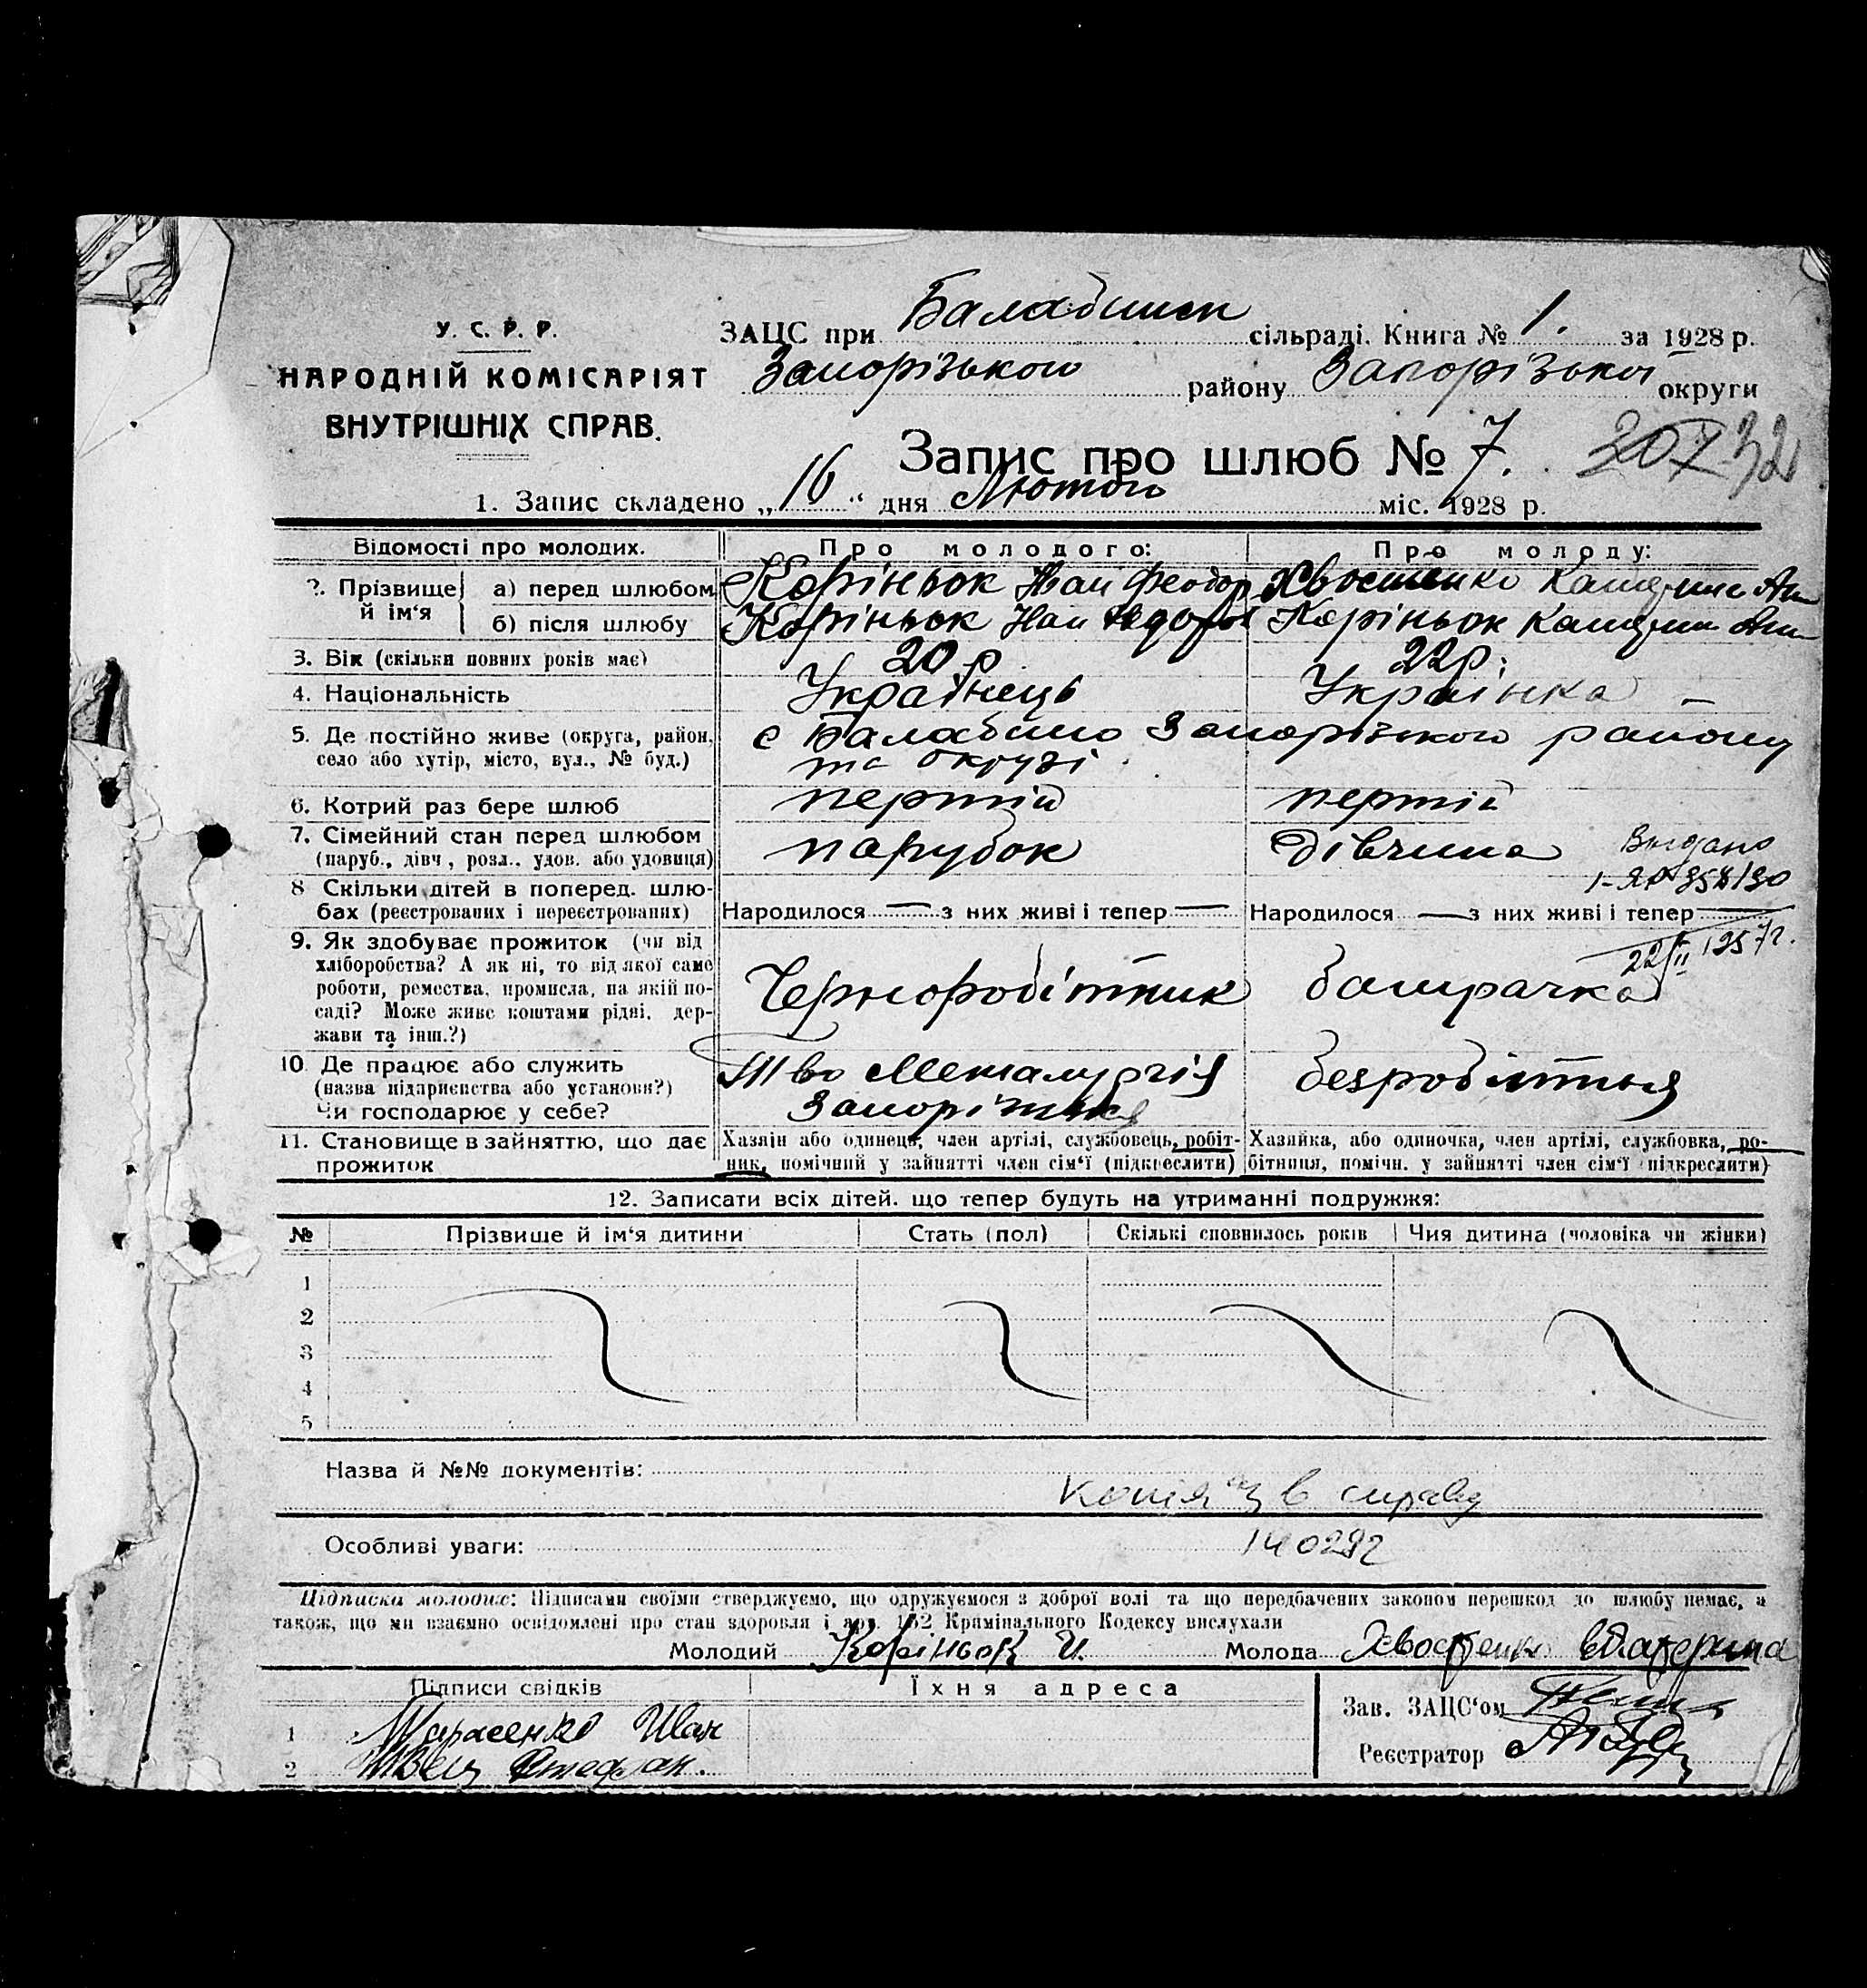 У. С. Р. Р.
НАРОДНІЙ КОМІСАРІЯТ
ВНУТРІШНІХ СПРАВ.
ЗАЦС при Балабинск сільраді. Книга № 1. за 1928 р.
Запорізького району Запорізької округи
Запис про шлюб № 7.
1. Запис складено „16“ дня Лютого міс. 1928 р.
Відомості про молодих. Про молодого: Про молоду:
2. Прізвище й ім'я а) перед шлюбом Коріньок Іван Феодор Хвостенко Катерина
б) після шлюбу Коріньок Іван Коріньок Катерин
3. Вік (скільки повних років має) 20 р 22 р.
4. Національність Українець Українка
5. Де постійно живе (округа, район, с Балабино Запорізького району
село або хутір, місто, вул., № буд.) та округі
6. Котрий раз бере шлюб перший перший
7. Сімейний стан перед шлюбом парубок дівчина
(паруб., дівч., розл., удов. або удовиця)
Выдано
8 Скільки дітей в поперед. шлю-
бах (реєстрованих і нереєстрованих) Народилося — з них живі і тепер — Народилося — з них живі і тепер
9. Як здобуває прожиток (чи від
хліборобства? А як ні, то від якої саме
роботи, ремества, промисла, на якій по-
саді? Може живе коштами рідні, дер-
жави та інш.?)
Чернороб́ітник батрачка
10. Де працює або служить
(назва підприємства або установи?)
Чи господарює у себе?
Т во Металургія безробіття
11. Становище в зайняттю, що дає
прожиток
Хазяін або одинець, член артілі, службовець, робіт-
ник, помічний у зайнятті член сім'ї (підкреслити)
Хазяйка, або одиночка, член артілі, службовка, ро-
бітниця, помічн. у зайнятті член сім'ї (підкреслити)
12. Записати всіх дітей, що тепер будуть на утриманні подружжя:
№ Прізвище й ім'я дитини Стать (пол) Скількі сповнилось років Чия дитина (чоловіка чи жінки)
1
2
3
4
5
Назва й №№ документів:
копия в справу
Особливі уваги: 140292
Підписка молодих: Підписами своїми стверджуємо, що одружуємося з доброї волі та що передбачених законом перешкод до шлюбу немає, а
також, що ми взаємно освідомлені про стан здоровля і арт. 152 Крамінального Кодексу вислухали
Молодий Коріньок И. Молода Хвостенко Екатерина
Підписи свідків Їхня адреса
Зав. ЗАЦС'ом
1 Тарасенко Иван
Реєстратор
2 Швец Стефан.